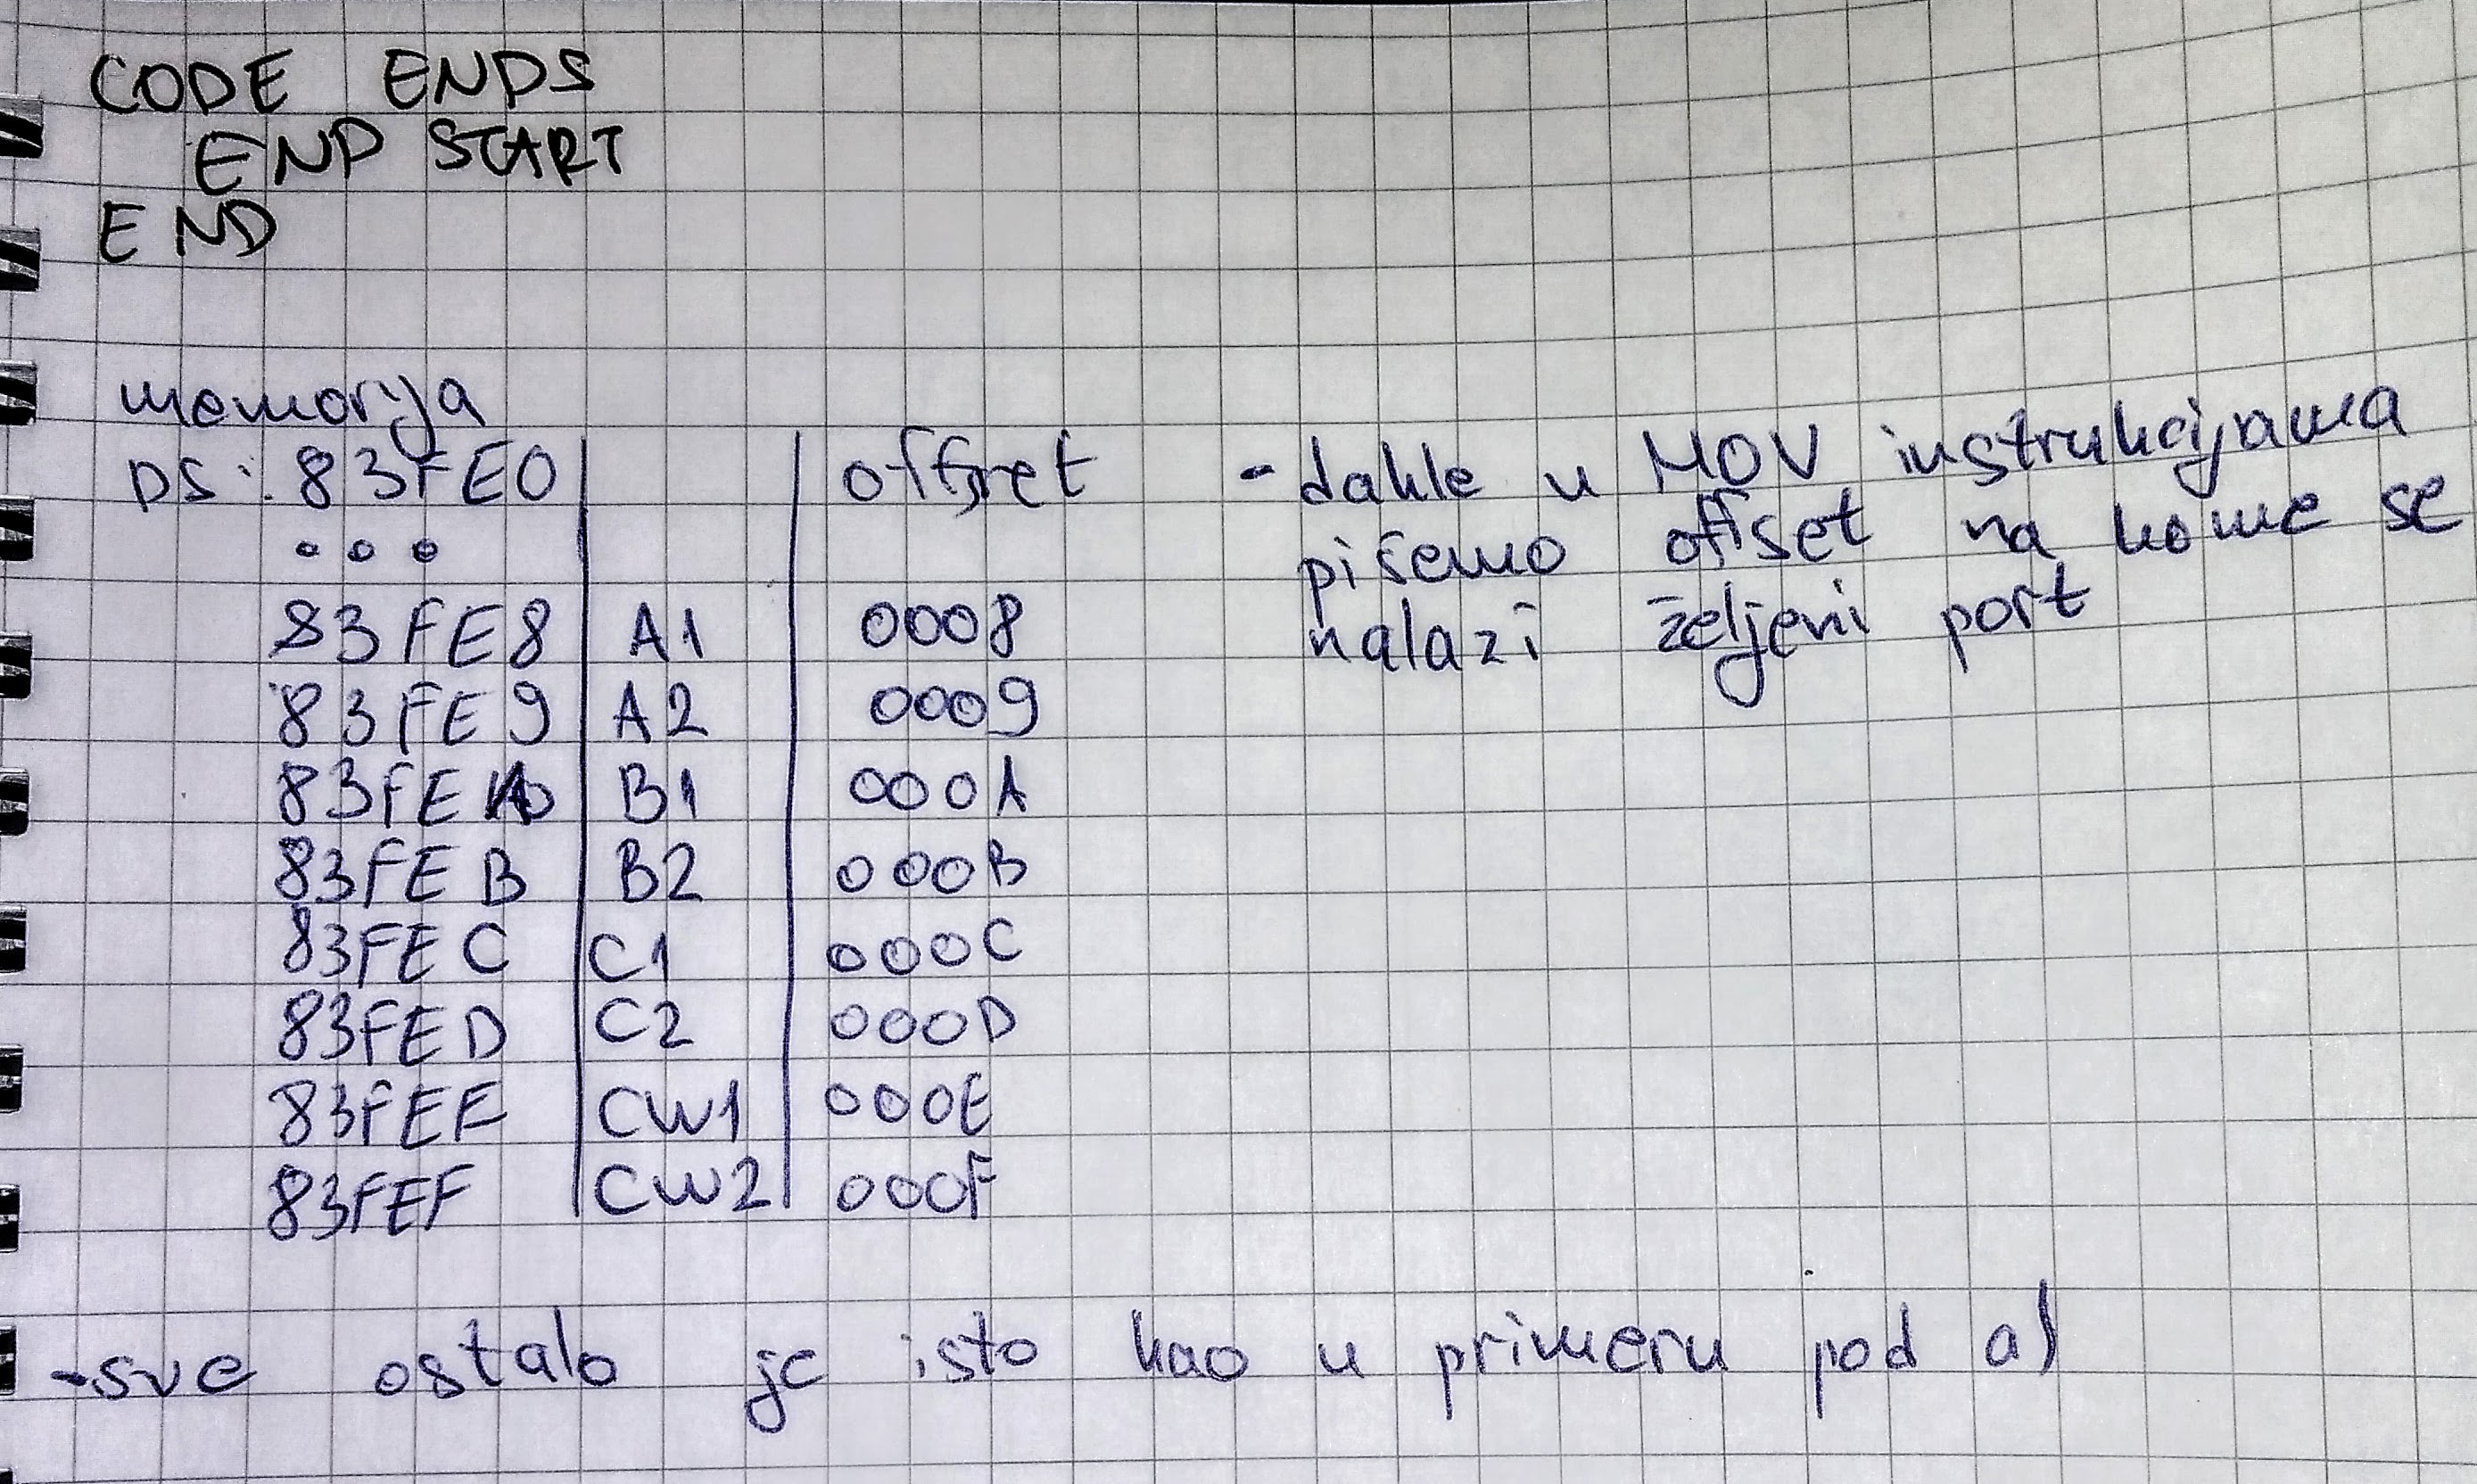 CODE ENDS
END START
END
memorija
DS: 83FE0 offset
...
83FE8 A1 0008
83FE9 A2 0009
83FEA B1 000A
83FEB B2 000B
83FEC C1 000C
83FED C2 000D
83FEE CW1 000E
83FEF CW2 000F
- dakle u MOV instrukcijama
pišemo offset na kome se
nalazi željeni port
- sve ostalo je isto kao u primeru pod a)